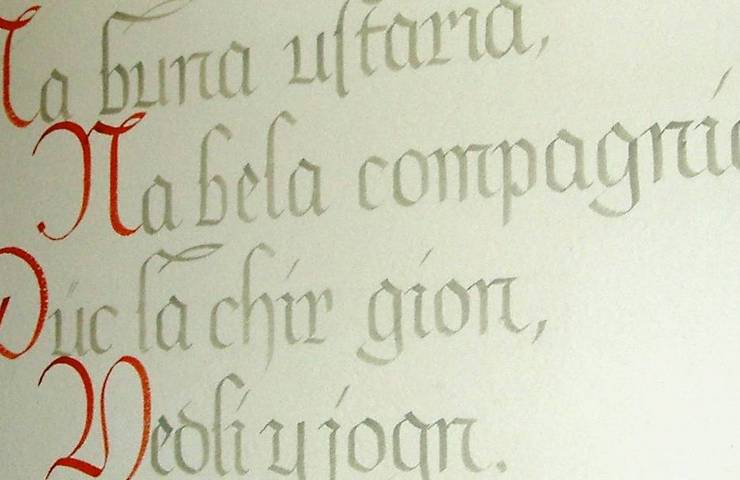 Na buna ustaria,
Na bela compagnia
Düc la chir gion,
Vedli y jogn.